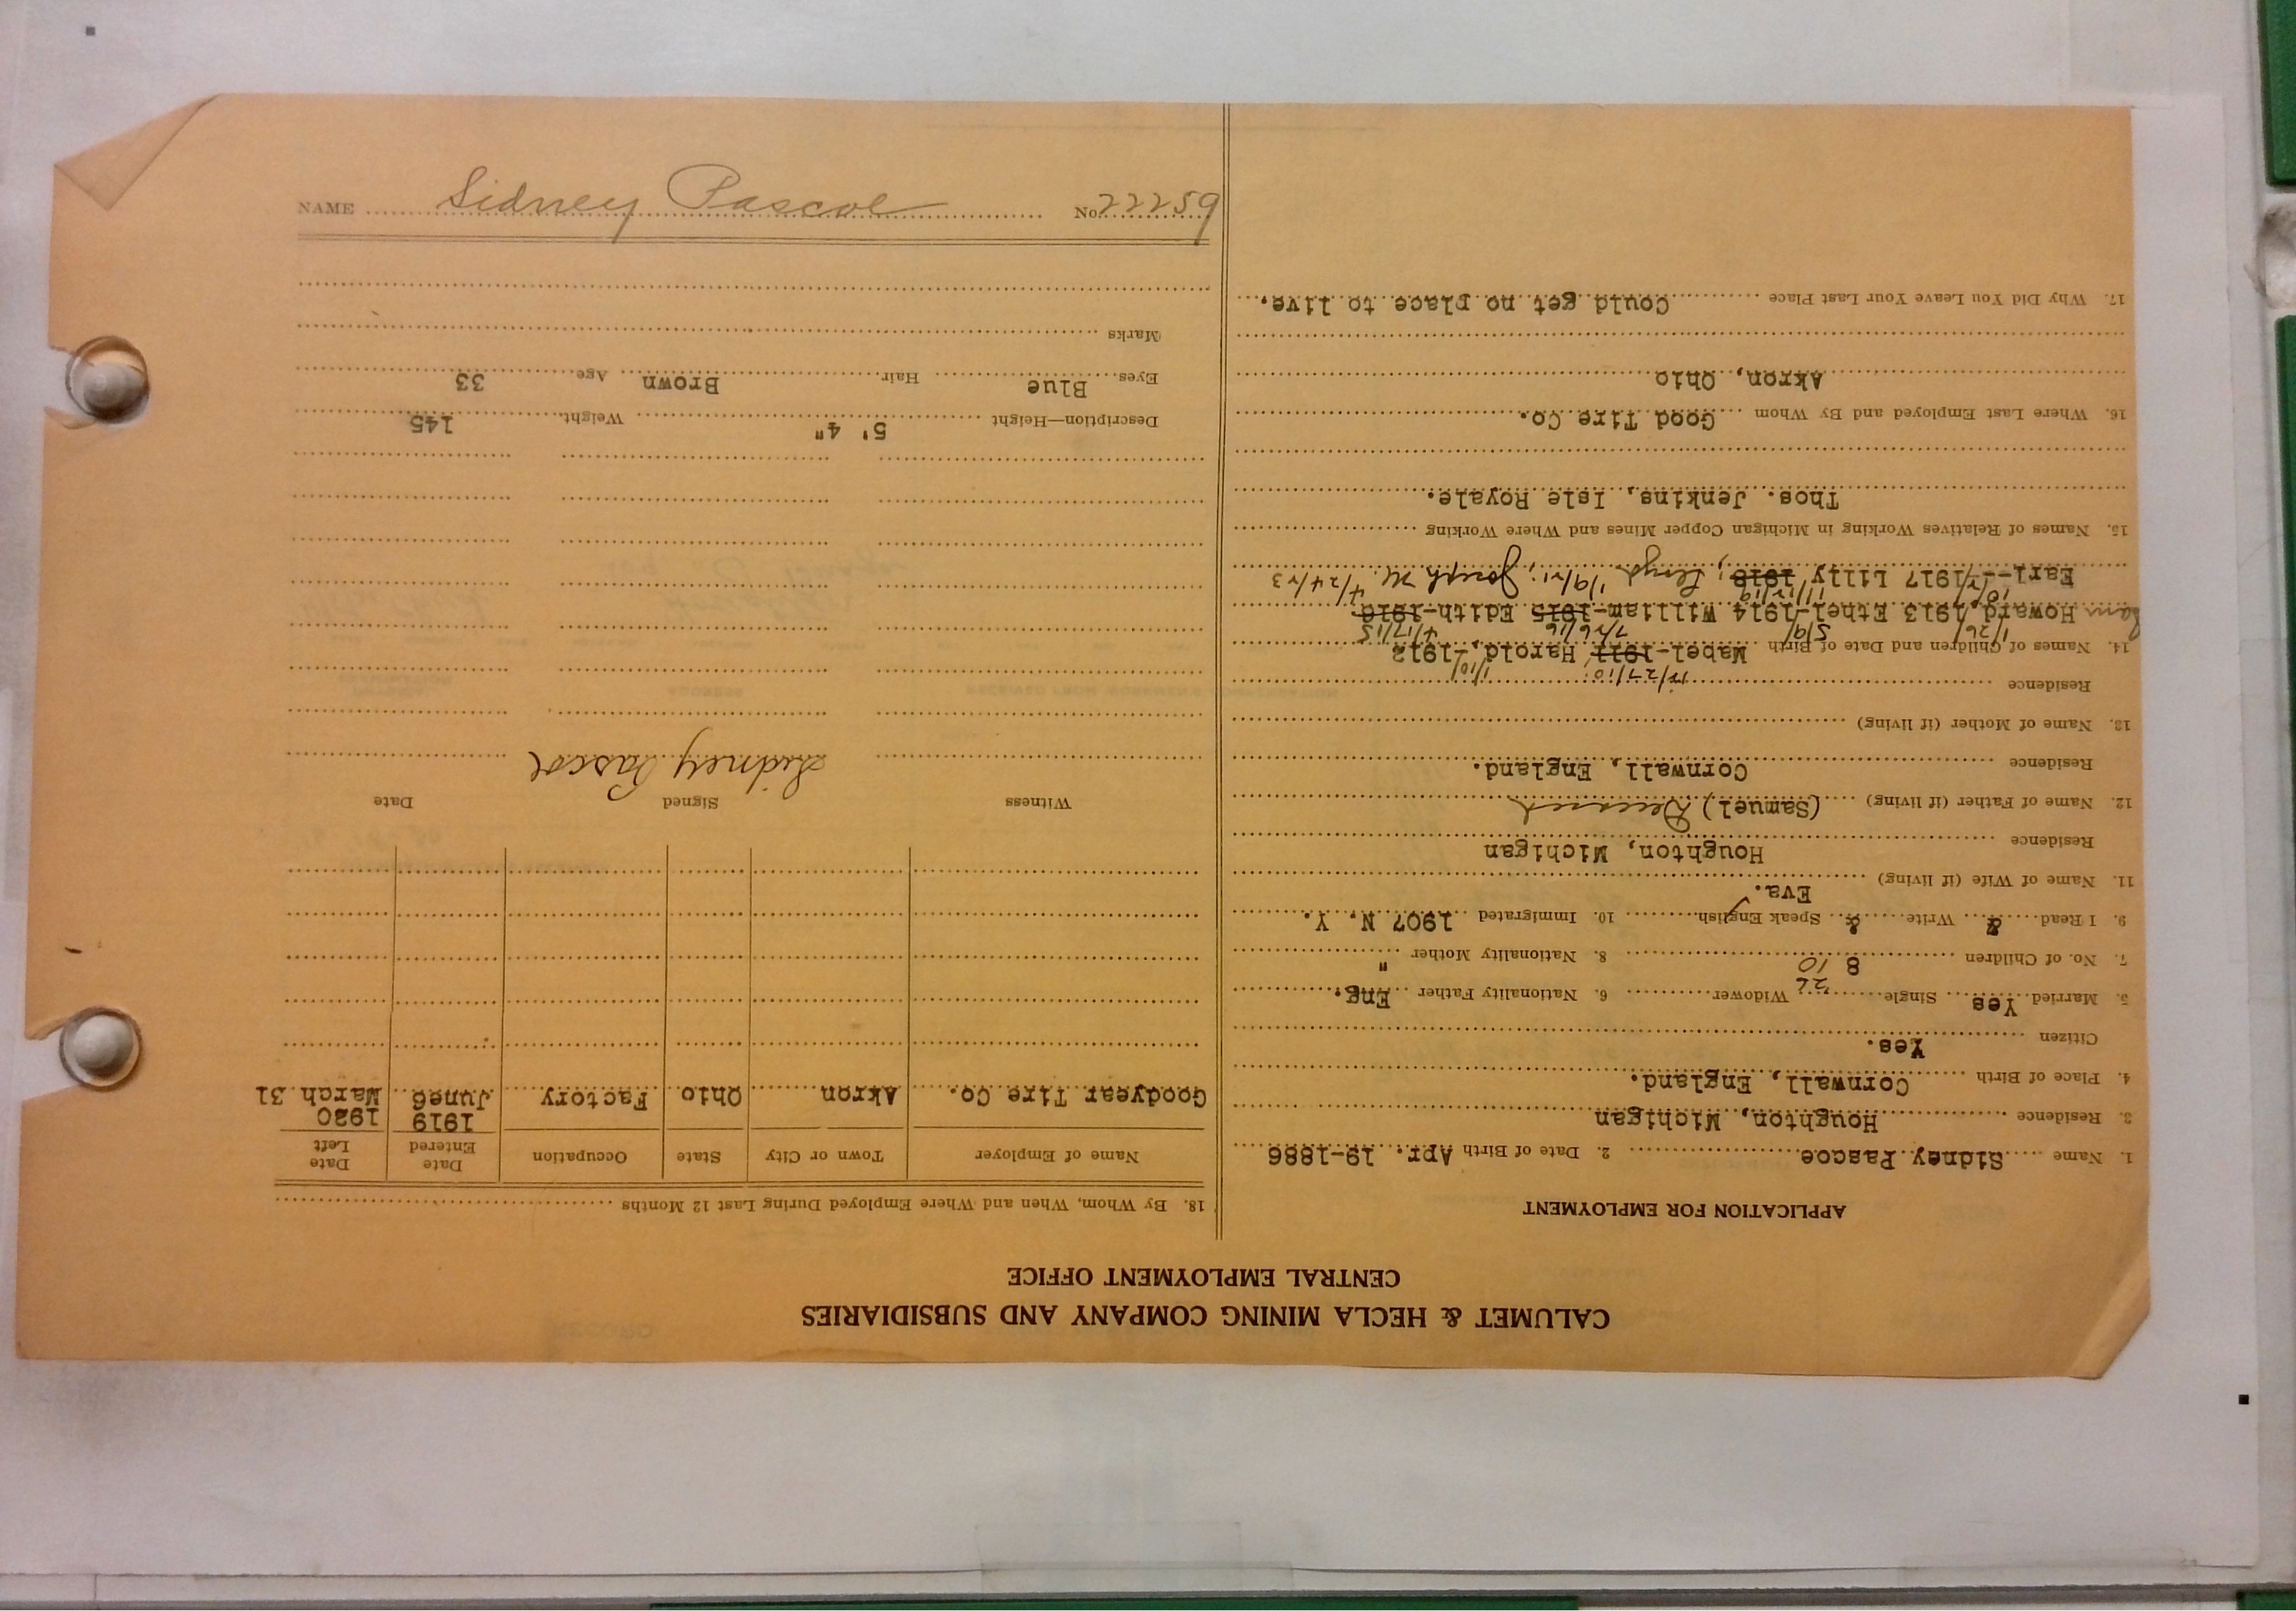 CALUMET & HECLA MINING COMPANY AND SUBSIDIARIES
CENTRAL EMPLOYMENT OFFICE
APPLICATION FOR EMPLOYMENT
1. Name Sidney Pascoe 2. Date of Birth Apr. 19-1886
3. Residence Houghton, Michigan
4. Place of Birth Cornwall, England.
Citizen Yes.
5. Married Yes Single 26 Widower 6. Nationality Father Eng.
7. No. of Children 8 10 8. Nationality Mother "
9. I Read & Write & Speak English 10. Immigrated 1907 N. Y.
11. Name of Wife (if living) Eva.
Residence Houghton, Michigan
12. Name of Father (if living) (Samuel) Deceased
Residence Cornwall, England.
13. Name of Mother (if living)
Residence
12/27/10
14. Names of Children and Date of Birth Mabel-1911 Harold,-1912
1/26/ 5/9/ 7/26/16 4/17/15
Howard,1913 Ethel-1914 William-1915 Edith-1916
Earl--1917 Lilly 1918; Lloyd 1/9/21; Joseph M. 4/24/23
15. Names of Relatives Working in Michigan Copper Mines and Where Working
Thos. Jenkins, Isle Royale.
16. Where Last Employed and By Whom Good Tire Co.
Akron, Ohio
17. Why Did You Leave Your Last Place Could get no place to live.
18. By Whom, When and Where Employed During Last 12 Months
Name of Employer Town or City State Occupation Date Entered Date Left
1919 1920
Goodyear Tire Co. Akron Ohio Factory June6 March 31
Witness Signed Date
Sidney Pascoe
Description—Height 5' 4" Weight 145
Eyes Blue Hair Brown Age 33
Marks
NAME Sidney Pascoe No. 22259